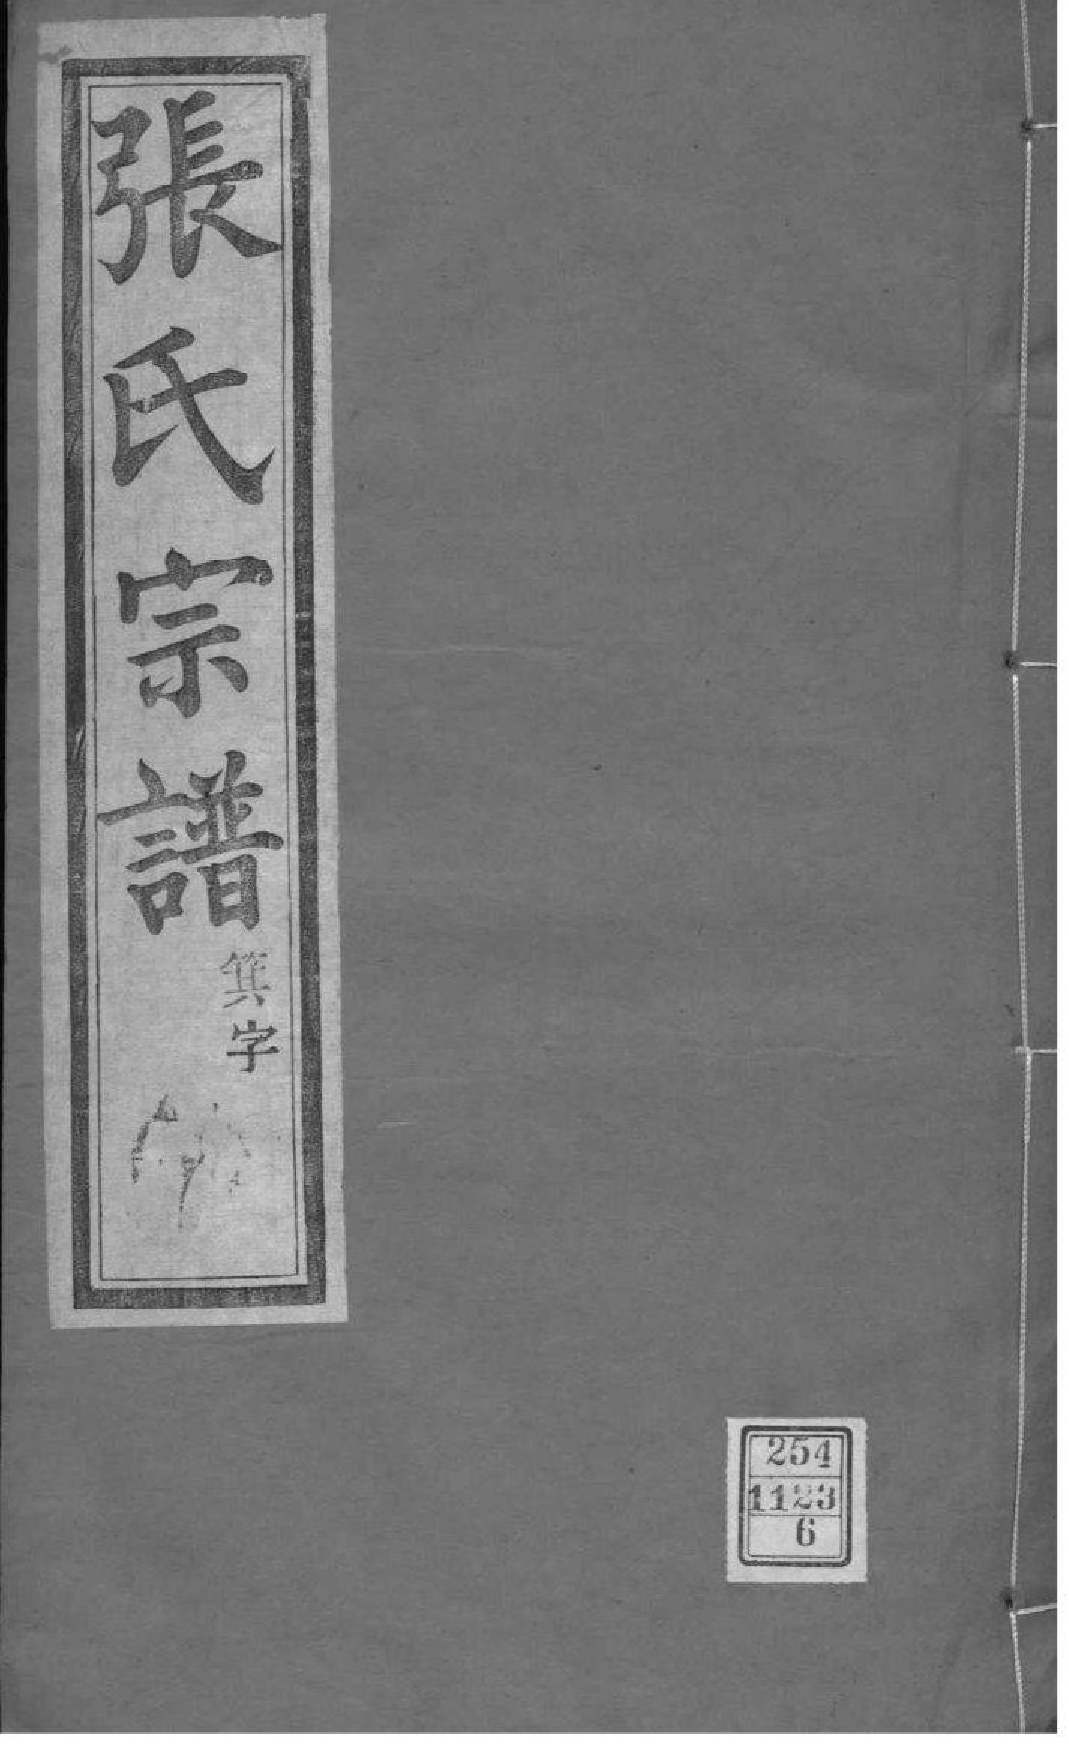 張氏宗譜
箕字
254
1123
6